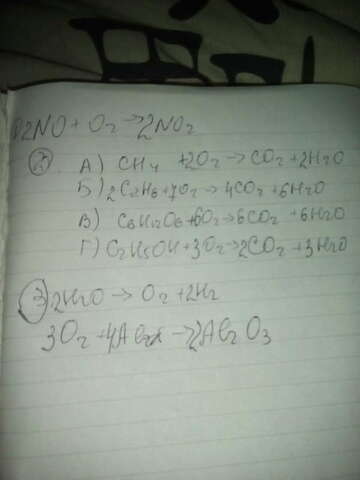 2NO + O2 → 2NO2
2. А) CH4 + 2O2 → CO2 + 2H2O
Б) 2C2H6 + 7O2 → 4CO2 + 6H2O
В) C6H12O6 + 6O2 → 6CO2 + 6H2O
Г) C2H5OH + 3O2 → 2CO2 + 3H2O
3 2H2O → O2 + 2H2
3O2 + 4Al → 2Al2O3